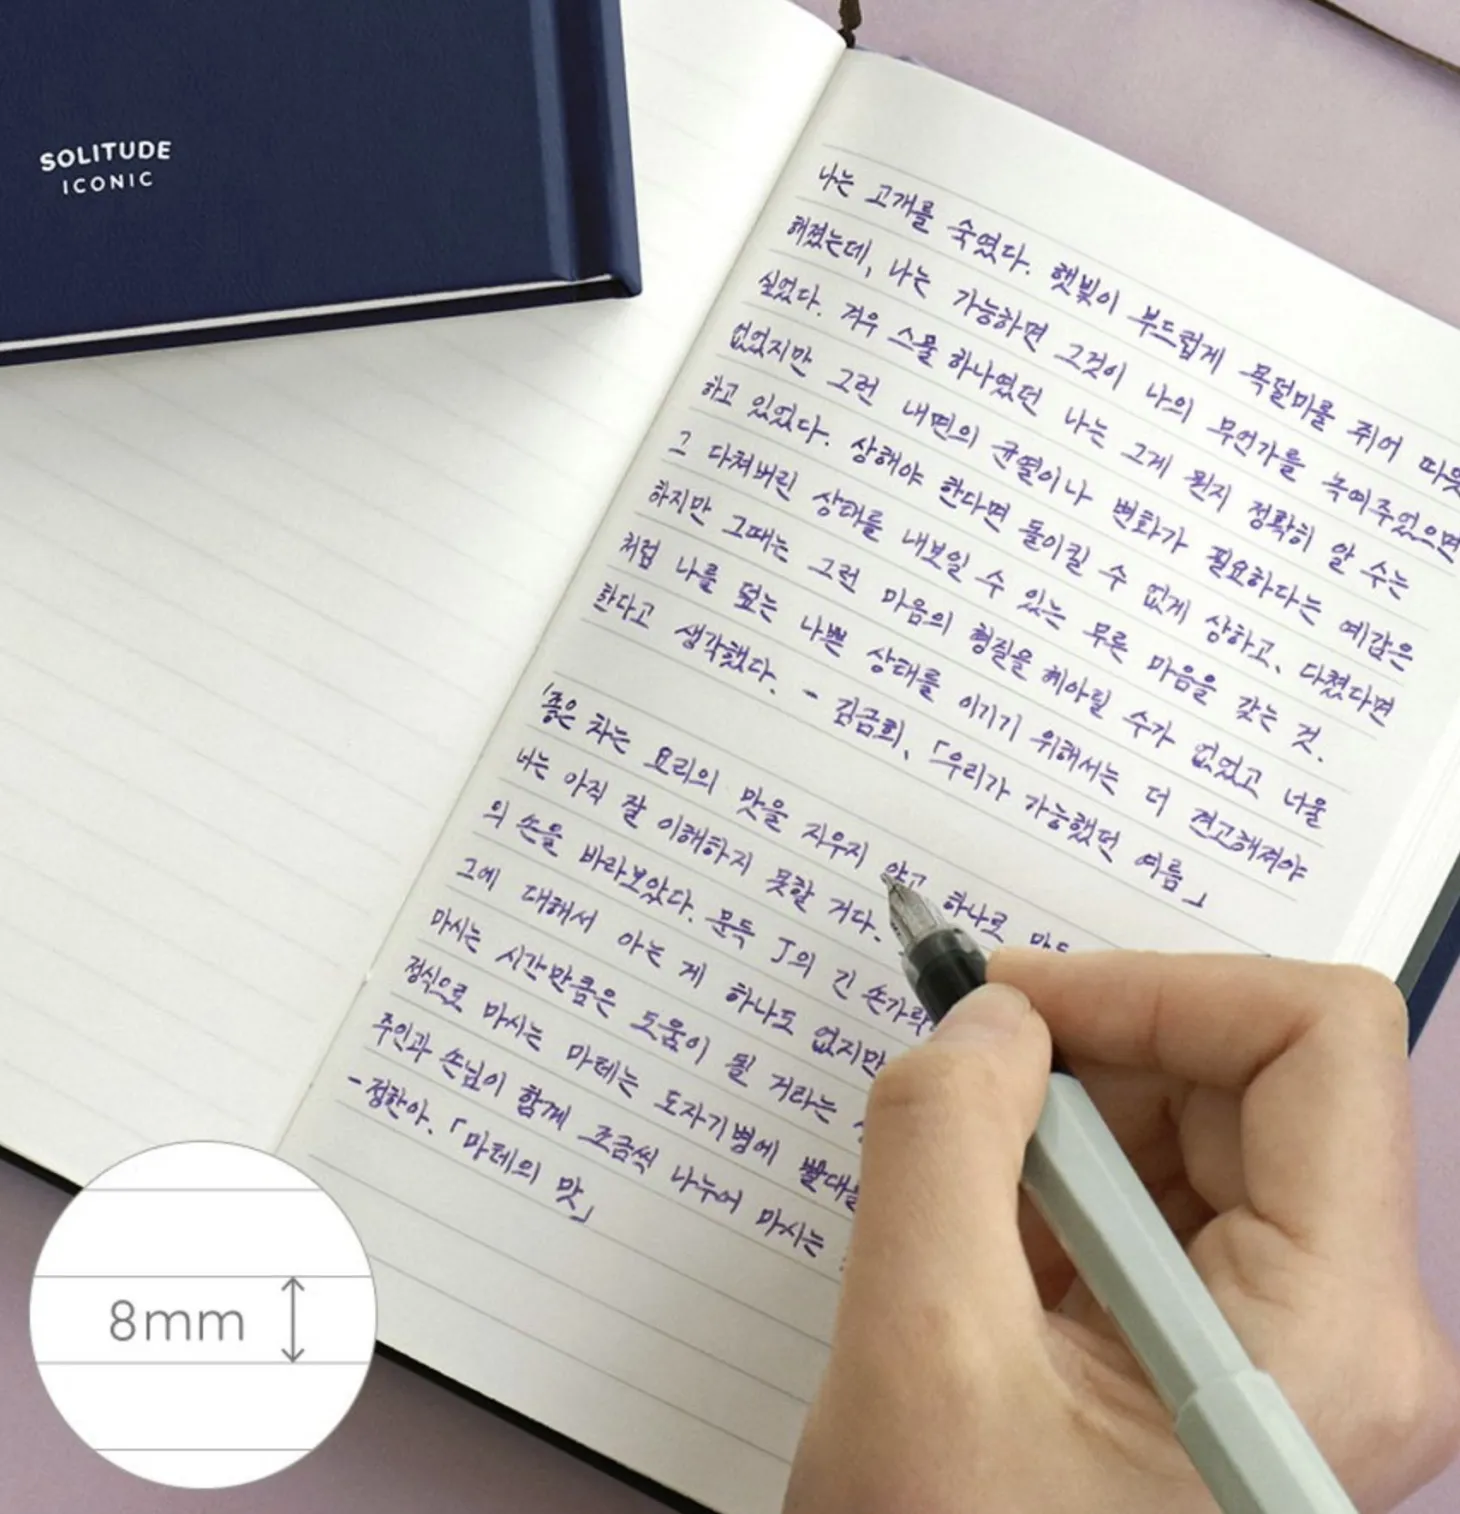 SOLITUDE
ICONIC
나는 고개를 숙였다. 햇빛이 부드럽게 목덜미를 쥐어 따뜻
해졌는데, 나는 가능하면 그것이 나의 무언가를 녹여주었으면
싶었다. 겨우 스물 하나였던 나는 그게 뭔지 정확히 알 수는
없었지만 그런 내면의 균열이나 변화가 필요하다는 예감은
하고 있었다. 상해야 한다면 돌이킬 수 없게 상하고, 다쳤다면
그 다쳐버린 상태를 내보일 수 있는 무른 마음을 갖는 것.
하지만 그때는 그런 마음의 형질을 헤아릴 수가 없었고 너울
처럼 나를 덮는 나쁜 상태를 이기기 위해서는 더 견고해져야
한다고 생각했다. - 김금희, 「우리가 가능했던 여름」
'좋은 차는 요리의 맛을 지우지 않고 하나로
너는 아직 잘 이해하지 못할 거다.
의 손을 바라보았다. 문득 J의 긴 손가락
그에 대해서 아는 게 하나도 없지만
마시는 시간만큼은 도움이 될 거라는
정식으로 마시는 마테는 도자기병에 빨대를
주인과 손님이 함께 조금씩 나누어 마시는
- 정한아, 「마테의 맛」
8mm